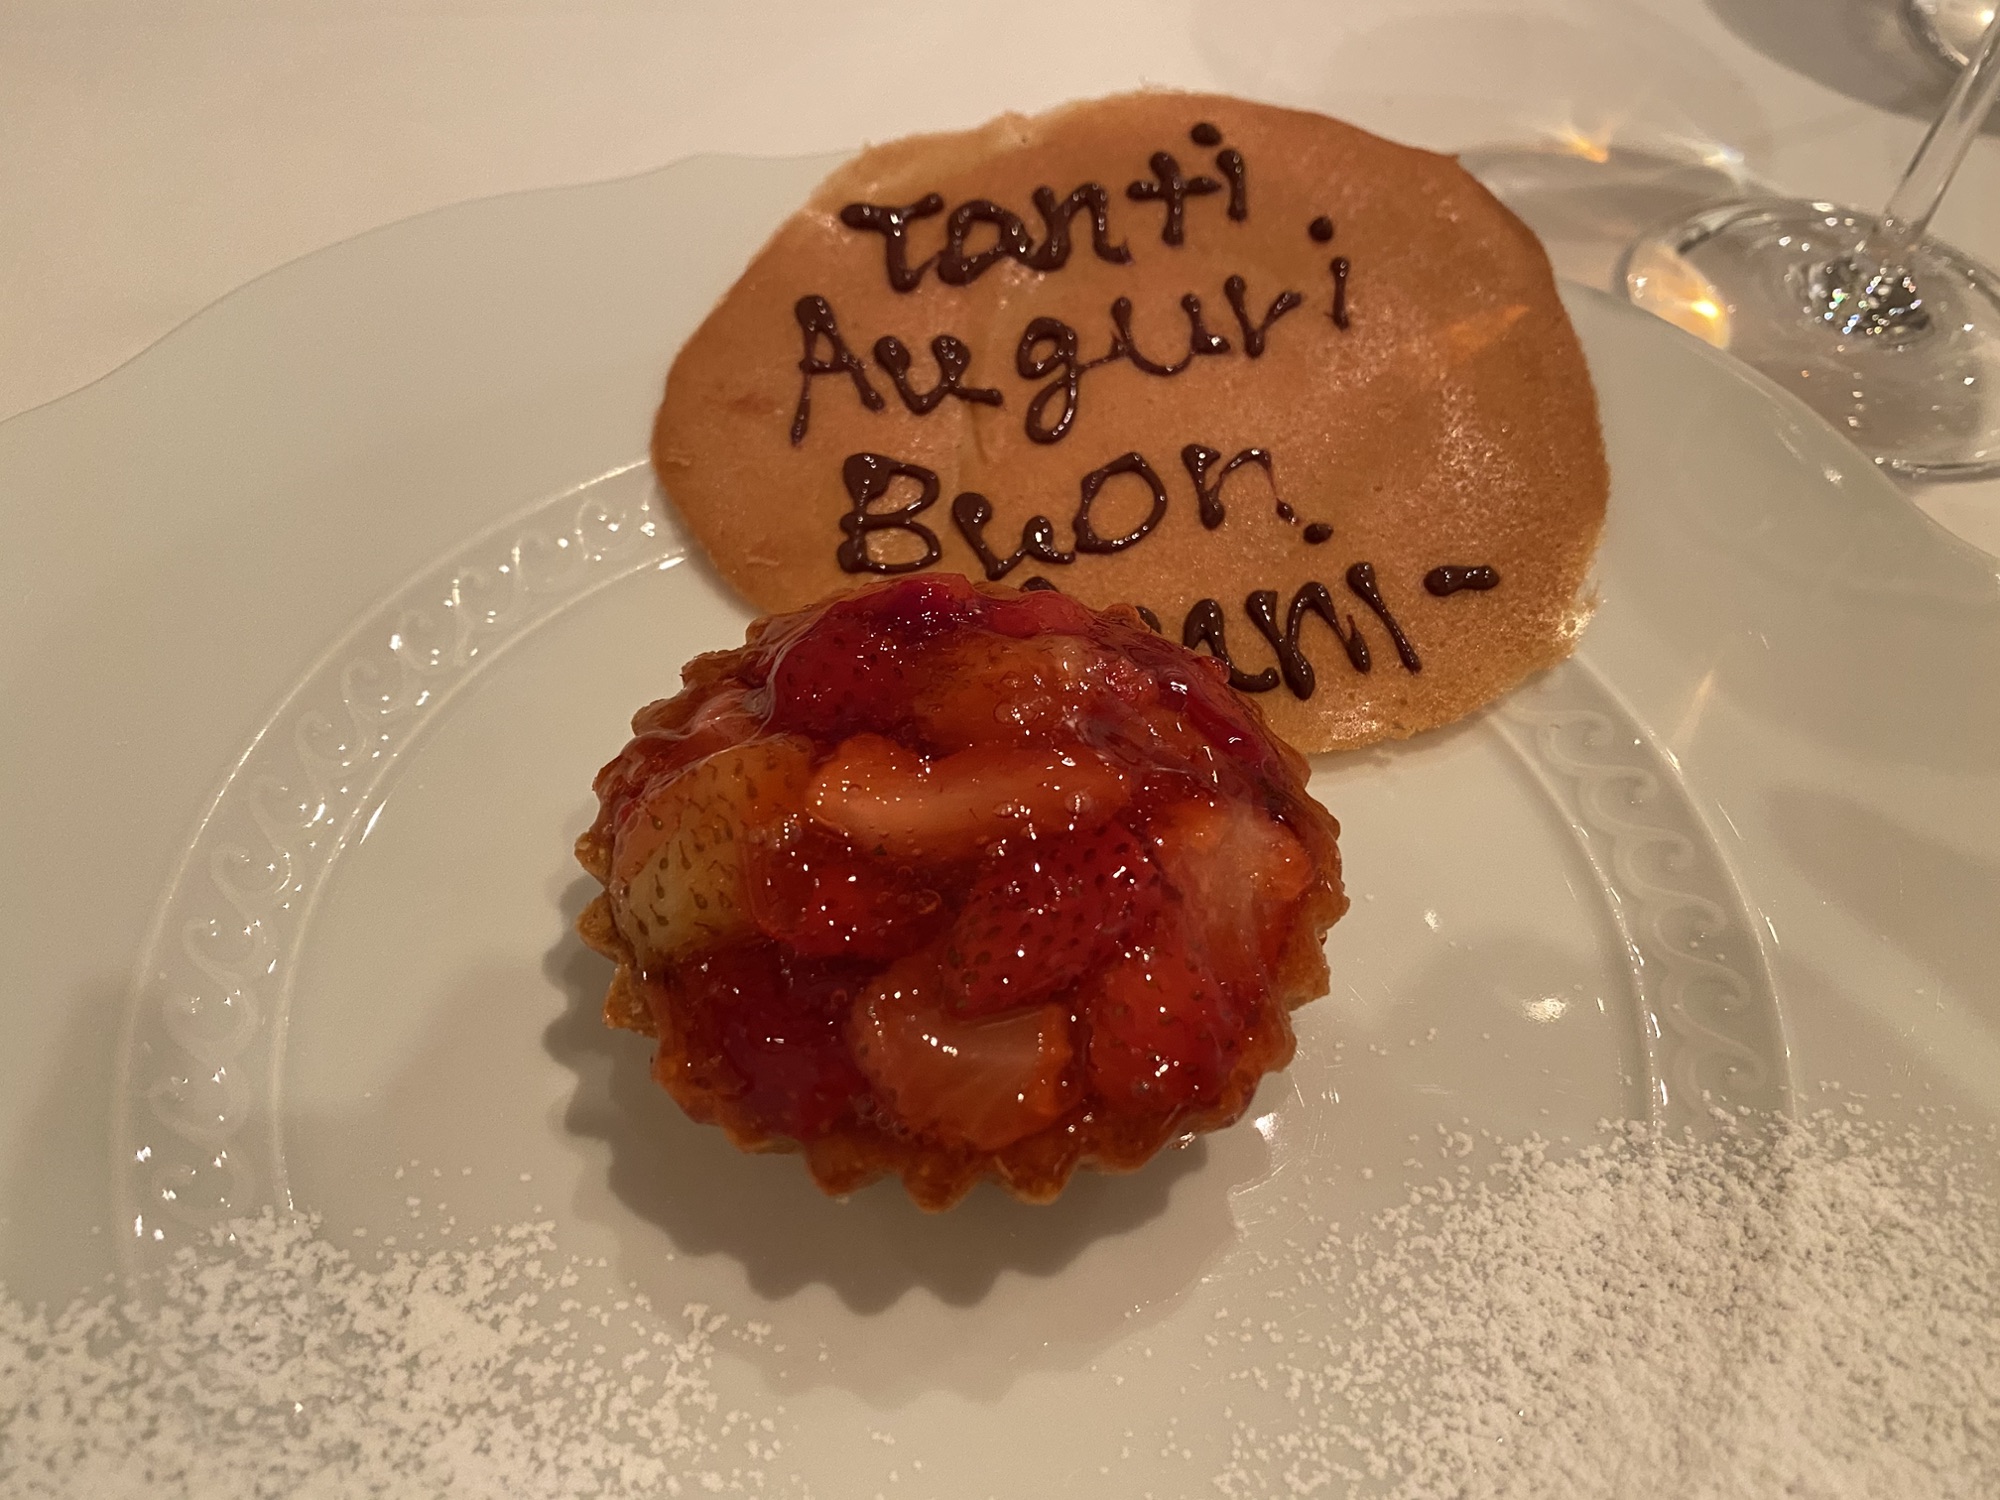 Tanti
Auguri
Buon